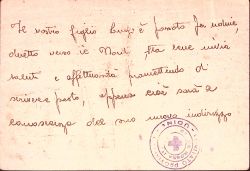 Il vostro figlio Luigi è passato per Udine,
diretto verso il Nord. Egli invia
saluti e affettuosità promettendo di
scrivere presto, appena sarà a
conoscenza del suo nuovo indirizzo
UDINE